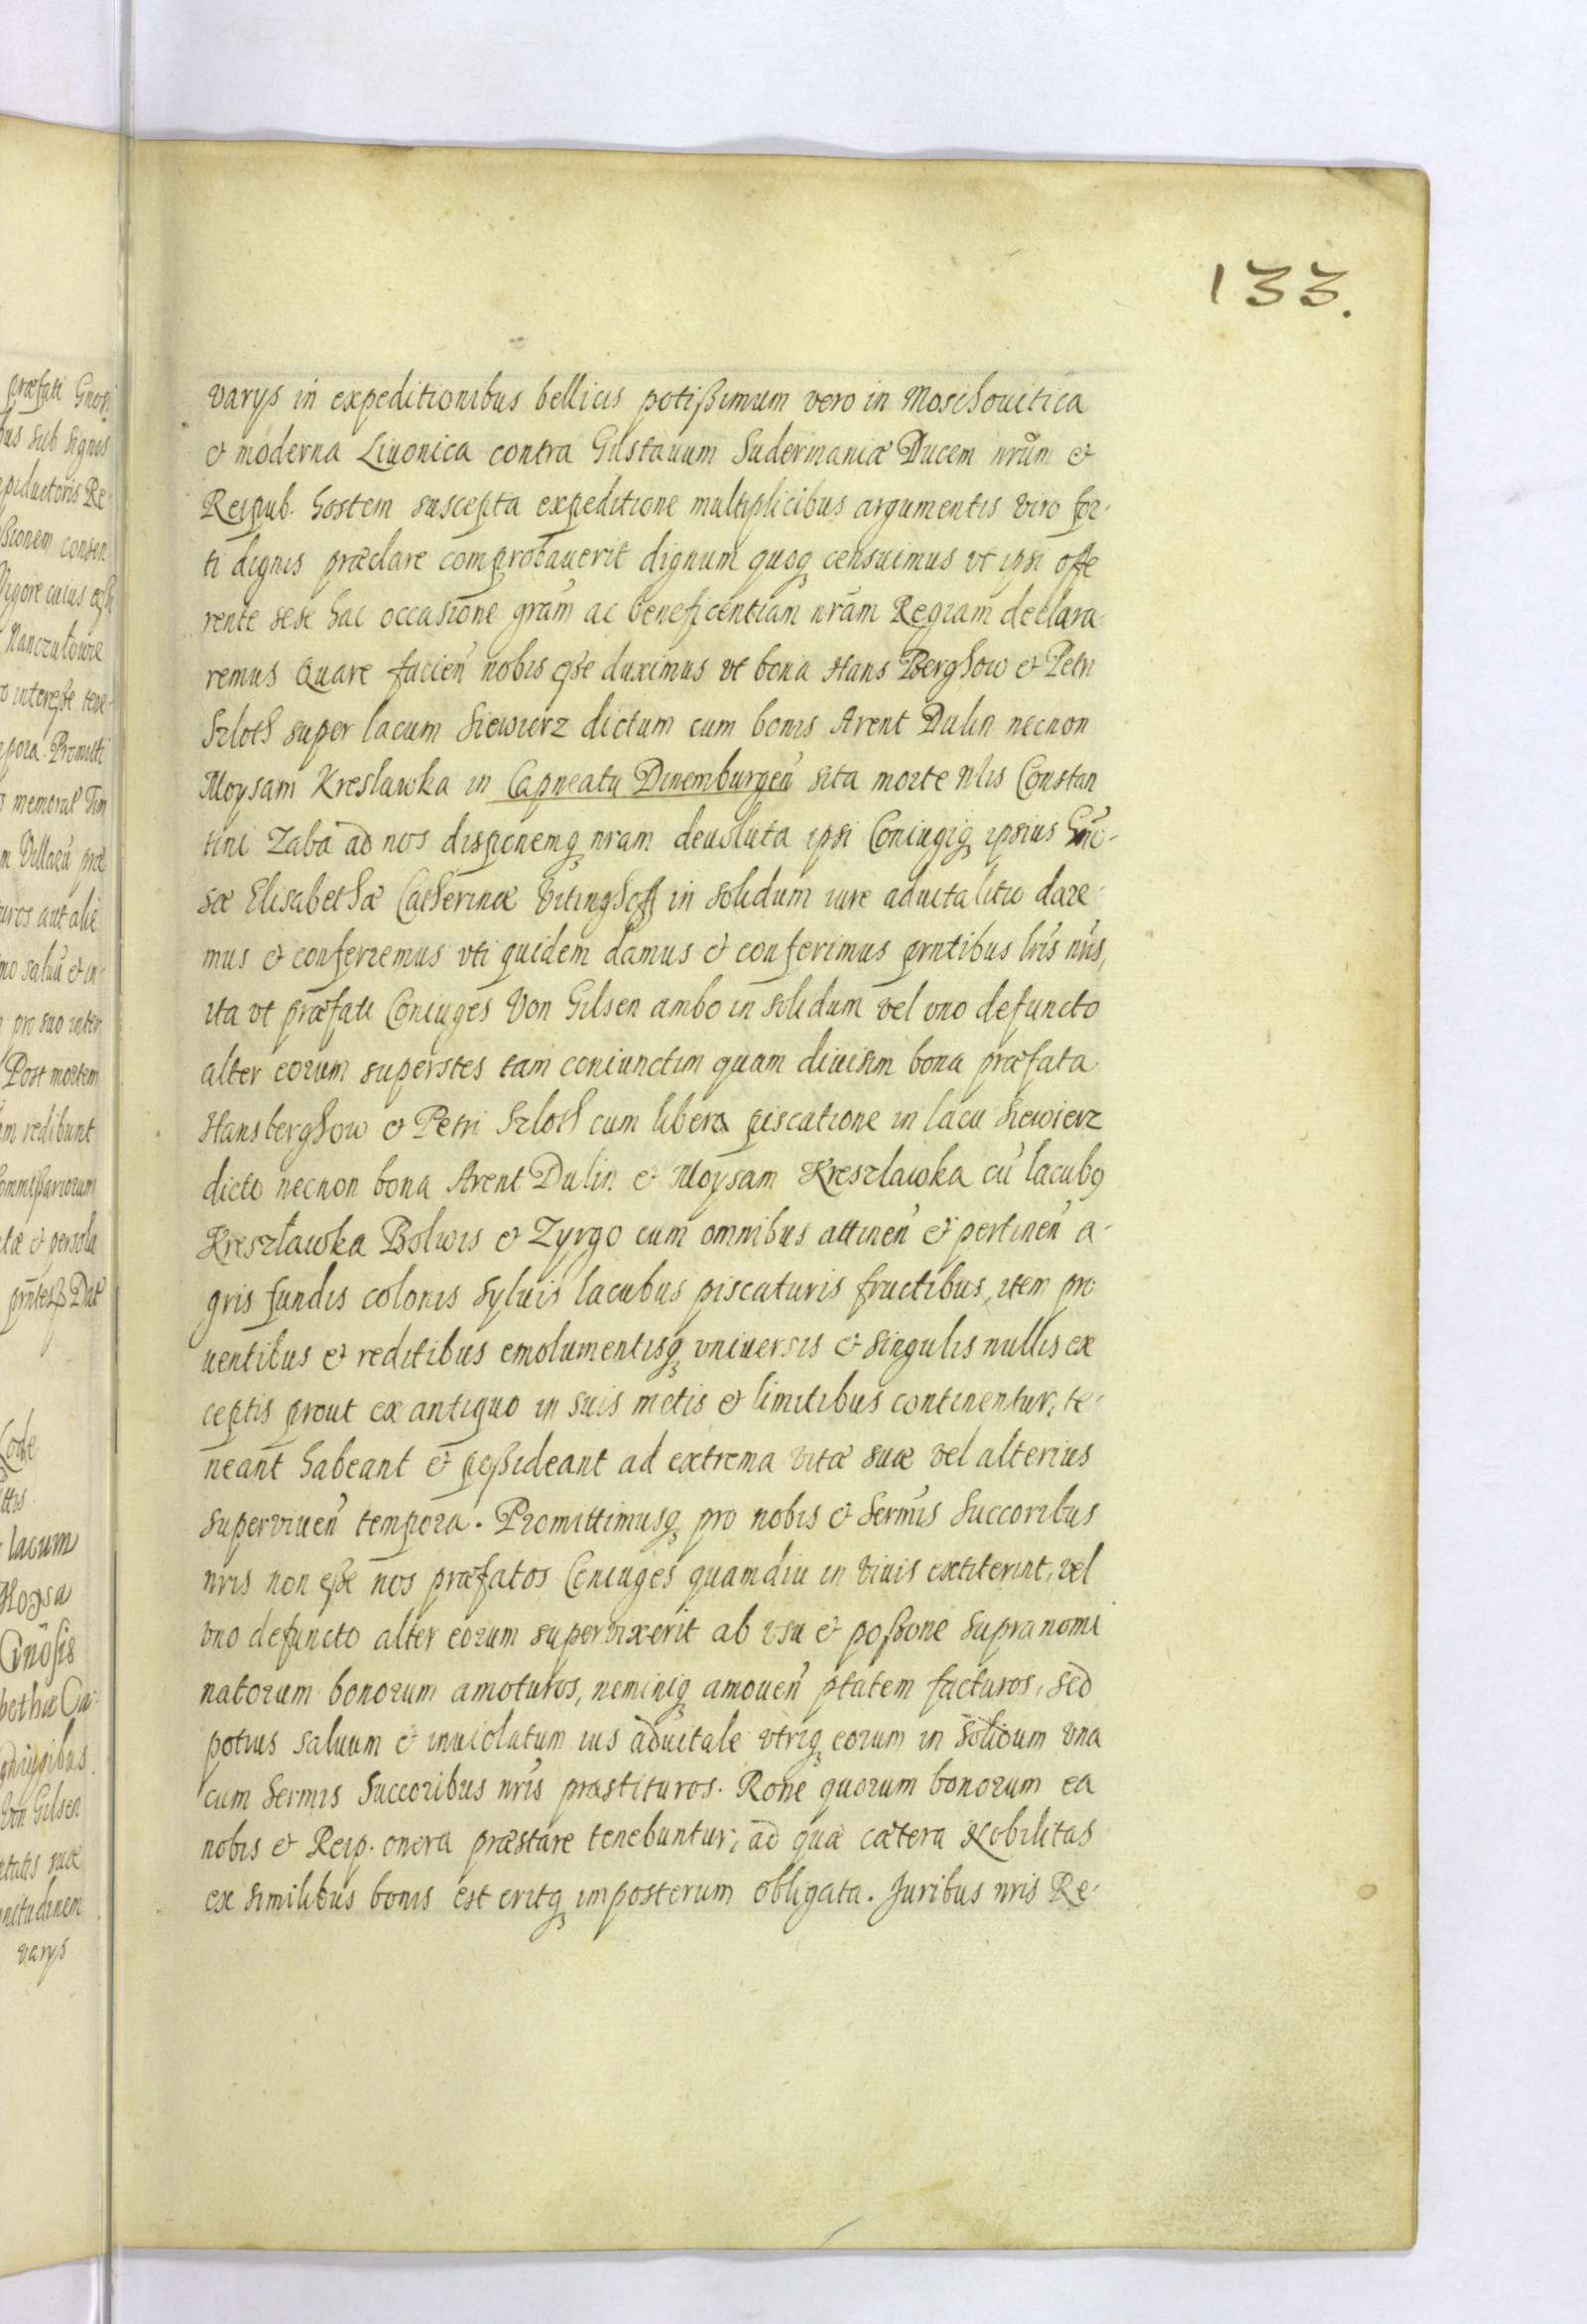 133.
varys in expeditionibus bellicis potißimum vero in Moschouitica
& moderna Liuonica contra Gustauum Sudermaniæ Ducem nrūm &
Reipub. hostem suscepta expeditione multiplicibus argumentis viro for-
ti dignis præclare comprobauerit dignum quoq censuimus vt ipsi offe
rente sese hac occasione grām ac beneficentiam nrām Regiam declara-
remus Quare facien̄ nobis eße duximus vt bona Hans Berghow & Petri
Szloth super lacum Siewierz dictum cum bonis Arent Dulin necnon
Moysam Kreslawka in Capneatu Dinemburgen̄ sita morte Nlis Constan
tini Zaba ad nos dispōnemq nram deuoluta ipsi Coniugiq ipsius Gn̄o-
sæ Elisabethæ Catherinæ Vitinghoff in solidum iure aduitalitio dare-
mus & conferremus vti quidem damus & conferimus prntibus lrīs nrīs,
ita vt præfati Coniuges Von Gilsen ambo in solidum vel uno defuncto
alter eorum superstes tam coniunctim quam diuisim bona præfata
Hansberghow & Petri Szloth cum libera piscatione in lacu Siewierz
dicto necnon bona Arent Dulin & Moysam Kreszlawka cū lacubq
Kreszławka Bolwis & Zyrgo cum omnibus attinen̄ & pertinen̄ a-
gris fundis colonis syluis lacubus piscaturis fructibus, item pro
uentibus et reditibus emolumentisq vniuersis & singulis nullis ex
ceptis prout ex antiquo in suis metis & limitibus continentur, te-
neant habeant & poßideant ad extrema vitæ suæ vel alterius
superviuen̄ tempora. Promittimusq pro nobis & Sermīs Succoribus
nris non eße nos præfatos Coniuges quamdiu in viuis extiterint, vel
vno defuncto alter eorum supervixerit ab vsu & poßone supranomi
natorum bonorum amoturos, neminiq amouen̄ ptatem facturos, sed
potius saluum & inuiolatum ius aduitale vtriq eorum in solidum vna
cum Sermis Succoribus nrīs præstituros. Rone quorum bonorum ea
nobis & Reip. onera præstare tenebuntur, ad quæ cætera Nobilitas
ex similibus bonis est eritq imposterum obligata. Juribus nris Re-
præfati
sub signis
consen
Vigore cuius
intereße tene-
Promitti
aut alie
pro suo inter
Post mortem
redibunt
& persolu
Dat
lacum
Moysa
Gnōsis
Von Gilsen
suæ
varys